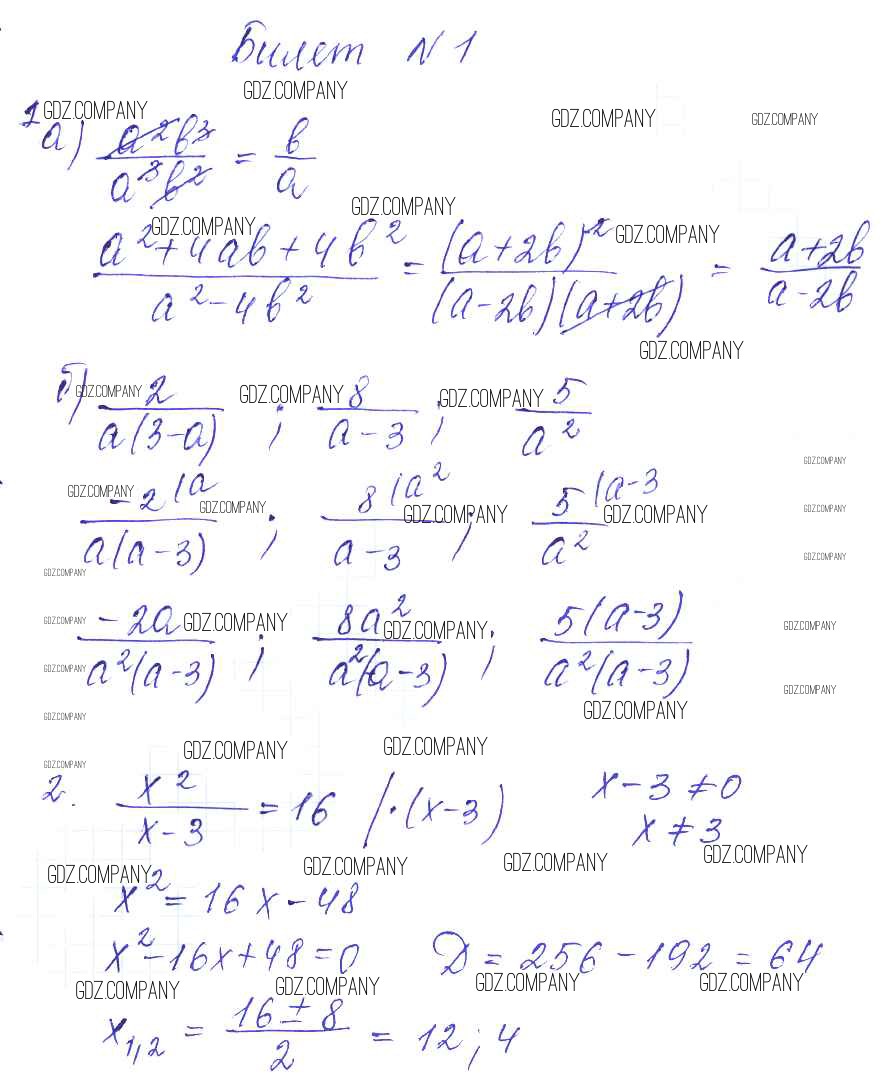 Билет N 1
GDZ.COMPANY
1 GDZ.COMPANY
GDZ.COMPANY GDZ.COMPANY
а) a²b³/a³b² = b/a
GDZ.COMPANY
GDZ.COMPANY GDZ.COMPANY
(a²+4ab+4b²)/(a²-4b²) = (a+2b)²/((a-2b)(a+2b)) = (a+2b)/(a-2b)
GDZ.COMPANY
GDZ.COMPANY GDZ.COMPANY GDZ.COMPANY
б) 2/(a(3-a)) ; 8/(a-3) ; 5/a²
GDZ.COMPANY
GDZ.COMPANY GDZ.COMPANY GDZ.COMPANY GDZ.COMPANY GDZ.COMPANY
-2 (a/(a(a-3)) ; 8 (a²/(a-3) ; 5 (a-3/a²
GDZ.COMPANY GDZ.COMPANY
GDZ.COMPANY GDZ.COMPANY GDZ.COMPANY GDZ.COMPANY
-2a/(a²(a-3)) ; 8a²/(a²(a-3)) ; 5(a-3)/(a²(a-3))
GDZ.COMPANY GDZ.COMPANY
GDZ.COMPANY GDZ.COMPANY
GDZ.COMPANY GDZ.COMPANY
GDZ.COMPANY
2. x²/(x-3) = 16 /·(x-3) x-3≠0
x≠3
GDZ.COMPANY GDZ.COMPANY GDZ.COMPANY GDZ.COMPANY
x² = 16x-48
x²-16x+48=0 D = 256-192 = 64
GDZ.COMPANY GDZ.COMPANY GDZ.COMPANY GDZ.COMPANY
x₁,₂ = (16±8)/2 = 12; 4